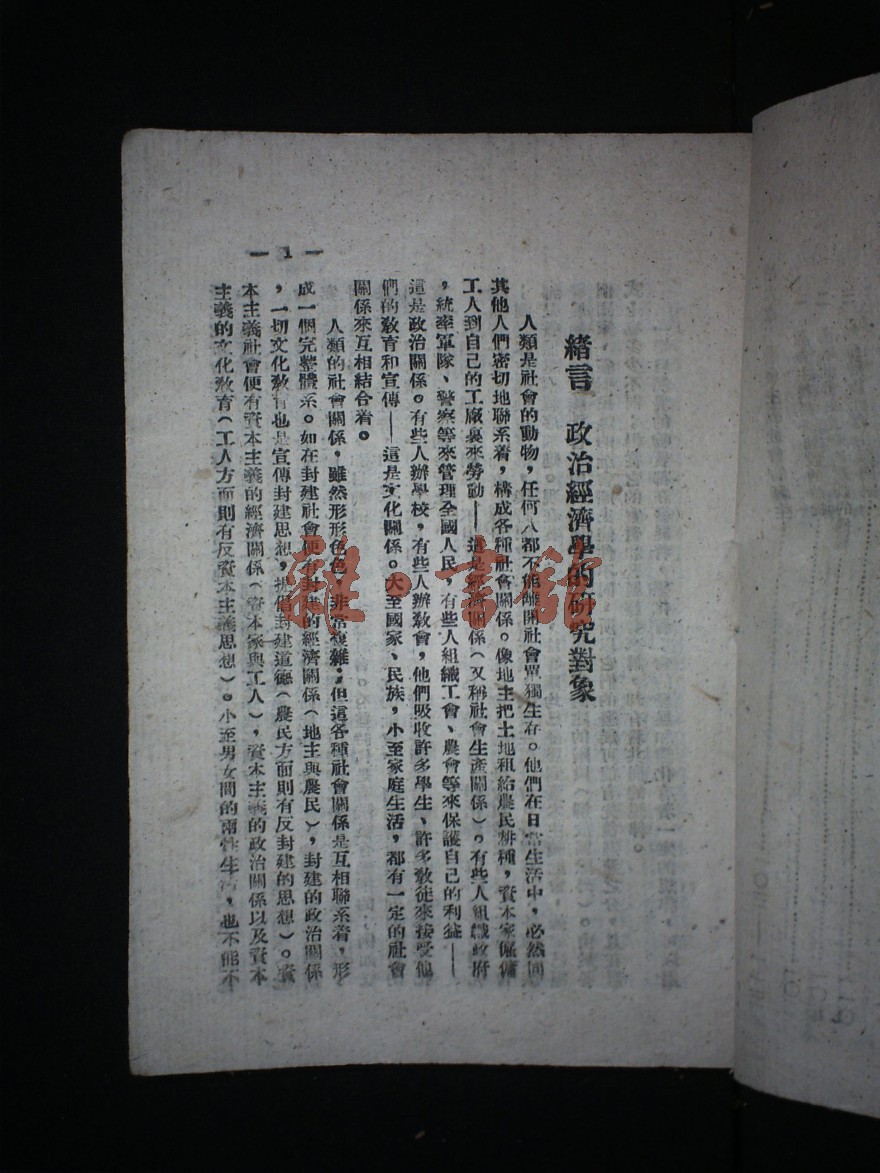 緒言　政治經濟學的研究對象
人類是社會的動物，任何人都不能離開社會單獨生存。他們在日常生活中，必然同
其他人們密切地聯系着，構成各種社會關係。像地主把土地租給農民耕種，資本家僱傭
工人到自己的工廠裏來勞動——這是經濟關係（又稱社會生產關係）。有些人組織政府
，統率軍隊、警察等來管理全國人民，有些人組織工會、農會等來保護自己的利益——
這是政治關係。有些人辦學校，有些人辦教會，他們吸收許多學生、許多教徒來接受他
們的教育和宣傳——這是文化關係。大至國家、民族，小至家庭生活，都有一定的社會
關係來互相結合着。
人類的社會關係，雖然形形色色，非常複雜；但這各種社會關係是互相聯系着，形
成一個完整體系。如在封建社會便有封建的經濟關係（地主與農民），封建的政治關係
，一切文化教育也是宣傳封建思想，提倡封建道德（農民方面則有反封建的思想）。資
本主義社會便有資本主義的經濟關係（資本家與工人），資本主義的政治關係以及資本
主義的文化教育（工人方面則有反資本主義思想）。小至男女間的兩性生活，也不能不
— 1 —
雜·書館